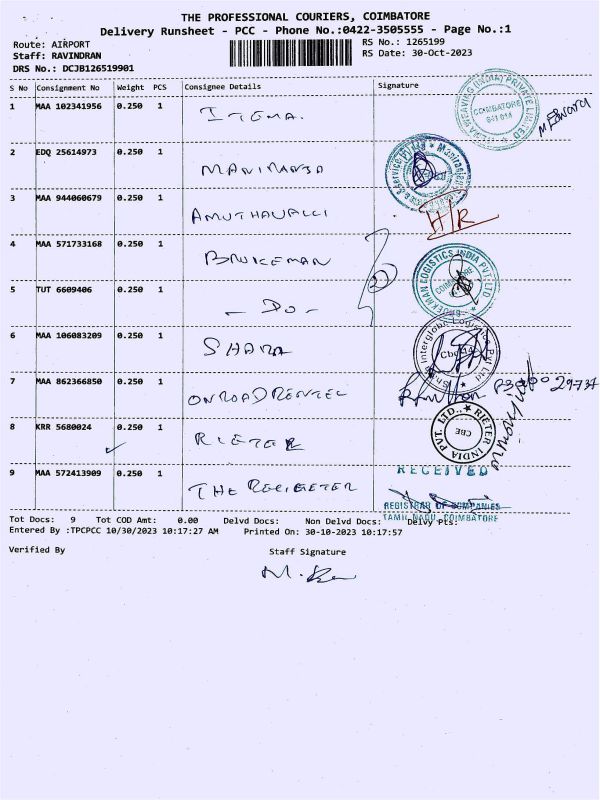 THE PROFESSIONAL COURIERS, COIMBATORE
Delivery Runsheet - PCC - Phone No.:0422-3505555 - Page No.:1
Route: AIRPORT
RS No.: 1265199
Staff: RAVINDRAN
RS Date: 30-Oct-2023
DRS No.: DCJB126519901
S No Consignment No Weight PCS Consignee Details Signature
1 MAA 102341956 0.250 1 ITEMA.
WEAVING (INDIA) PRIVATE LIMITED COIMBATORE 641 014
2 EDQ 25614973 0.250 1
3 MAA 944060679 0.250 1 AMUTHAVALLI H/R
4 MAA 571733168 0.250 1 BRUKEMAN
LOGISTICS INDIA PVT LTD COIMBATORE
2
5 TUT 6609406 0.250 1 - DO -
6 MAA 106083209 0.250 1 SHARA
Interglobe Logistics Pvt Ltd
7 MAA 862366850 0.250 1 ONROADRENTEL
8 KRR 5680024 0.250 1 RIETER
RIETER INDIA PVT. LTD. CBE
9 MAA 572413909 0.250 1 THE REGISETER
RECEIVED
REGISTRAR OF COMPANIES
TAMIL NADU, COIMBATORE
Tot Docs: 9 Tot COD Amt: 0.00 Delvd Docs: Non Delvd Docs: Delvy Pts:
Entered By :TPCPCC 10/30/2023 10:17:27 AM Printed On: 30-10-2023 10:17:57
Verified By Staff Signature